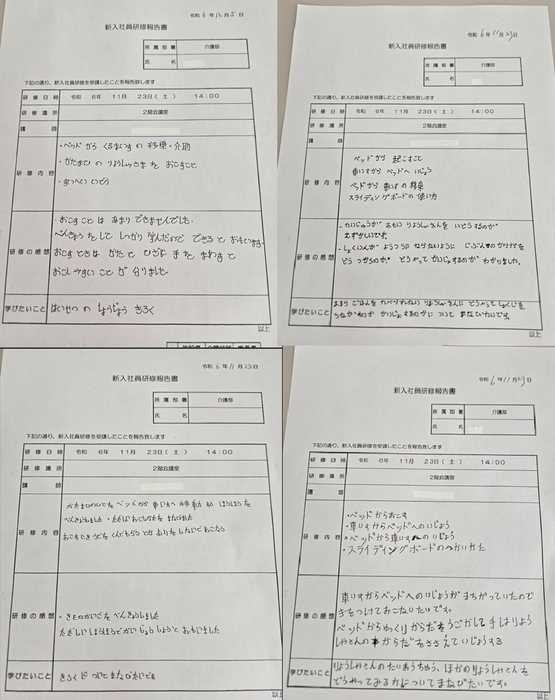 令和 6 年 12 月 5 日
新入社員研修報告書
所属部署 介護部
氏名
下記の通り、新入社員研修を受講したことを報告致します
研修日時 令和 6年 11月 23日(土) 14:00
研修場所 2階会議室
講師
研修内容
・ベッドから くるまいす の 移乗・介助
・かたまひ の りようしゃさまを おこすこと
研修の感想
おこすことは あまり できませんでした。
べんきょう をして しっかり 学んだので できると おもいます。
おこすときは かたと ひざを まわすと
おこしやすい ことが 分りました。
学びたいこと はいせつの きろく
以上
令和 6 年 11 月 23 日
新入社員研修報告書
所属部署 介護部
氏名
下記の通り、新入社員研修を受講したことを報告致します
研修日時 令和 6年 11月 23日(土) 14:00
研修場所 2階会議室
講師
研修内容
ベッドから 起こすこと
車いすから ベッドへ いじょう
ベッドから 車いすの 移乗
スライディングボードの 使い方
研修の感想
・たいじゅうが おもい りようしゃさんを いどうするのが
むずかしいです。
・しょくいんが ようつうに ならないように じぶんの からだを
どう つかうのか どうやって かいじょするのか わかりました。
学びたいこと
あまり ごはんを たべられない りようしゃさんに どうやって しょくじを
かいじょするのか について まなびたいです。
以上
令和 6 年 11 月 23 日
新入社員研修報告書
所属部署 介護部
氏名
下記の通り、新入社員研修を受講したことを報告致します
研修日時 令和 6年 11月 23日(土) 14:00
研修場所 2階会議室
講師
研修内容
ベッドから 車いすへ 移動する ほうほうを
べんきょうしました・ただしい おこしかたを まなびました
研修の感想
べんきょうしました
ただしい ほうほうで かいじょ しようと おもいました
学びたいこと きろくに ついて まなびたいです
以上
令和 6 年 11 月 23 日
新入社員研修報告書
所属部署 介護部
氏名
下記の通り、新入社員研修を受講したことを報告致します
研修日時 令和 6年 11月 23日(土) 14:00
研修場所 2階会議室
講師
研修内容
・ベッドからおこす
・車いすからベッドへのいじょう
・ベッドから車いすへのいじょう
・スライディングボードのつかいかた
研修の感想
車いすからベッドへのいじょうが まちがっていたので
きをつけておこないたいです。
ベッドからゆっくりからだをうごかして手はりよう
しゃさんのからだをささえていじょうする
学びたいこと
りようしゃさんのたいおうちゅう、ほかのりようしゃさんを
どうやってみるかについてまなびたいです。
以上